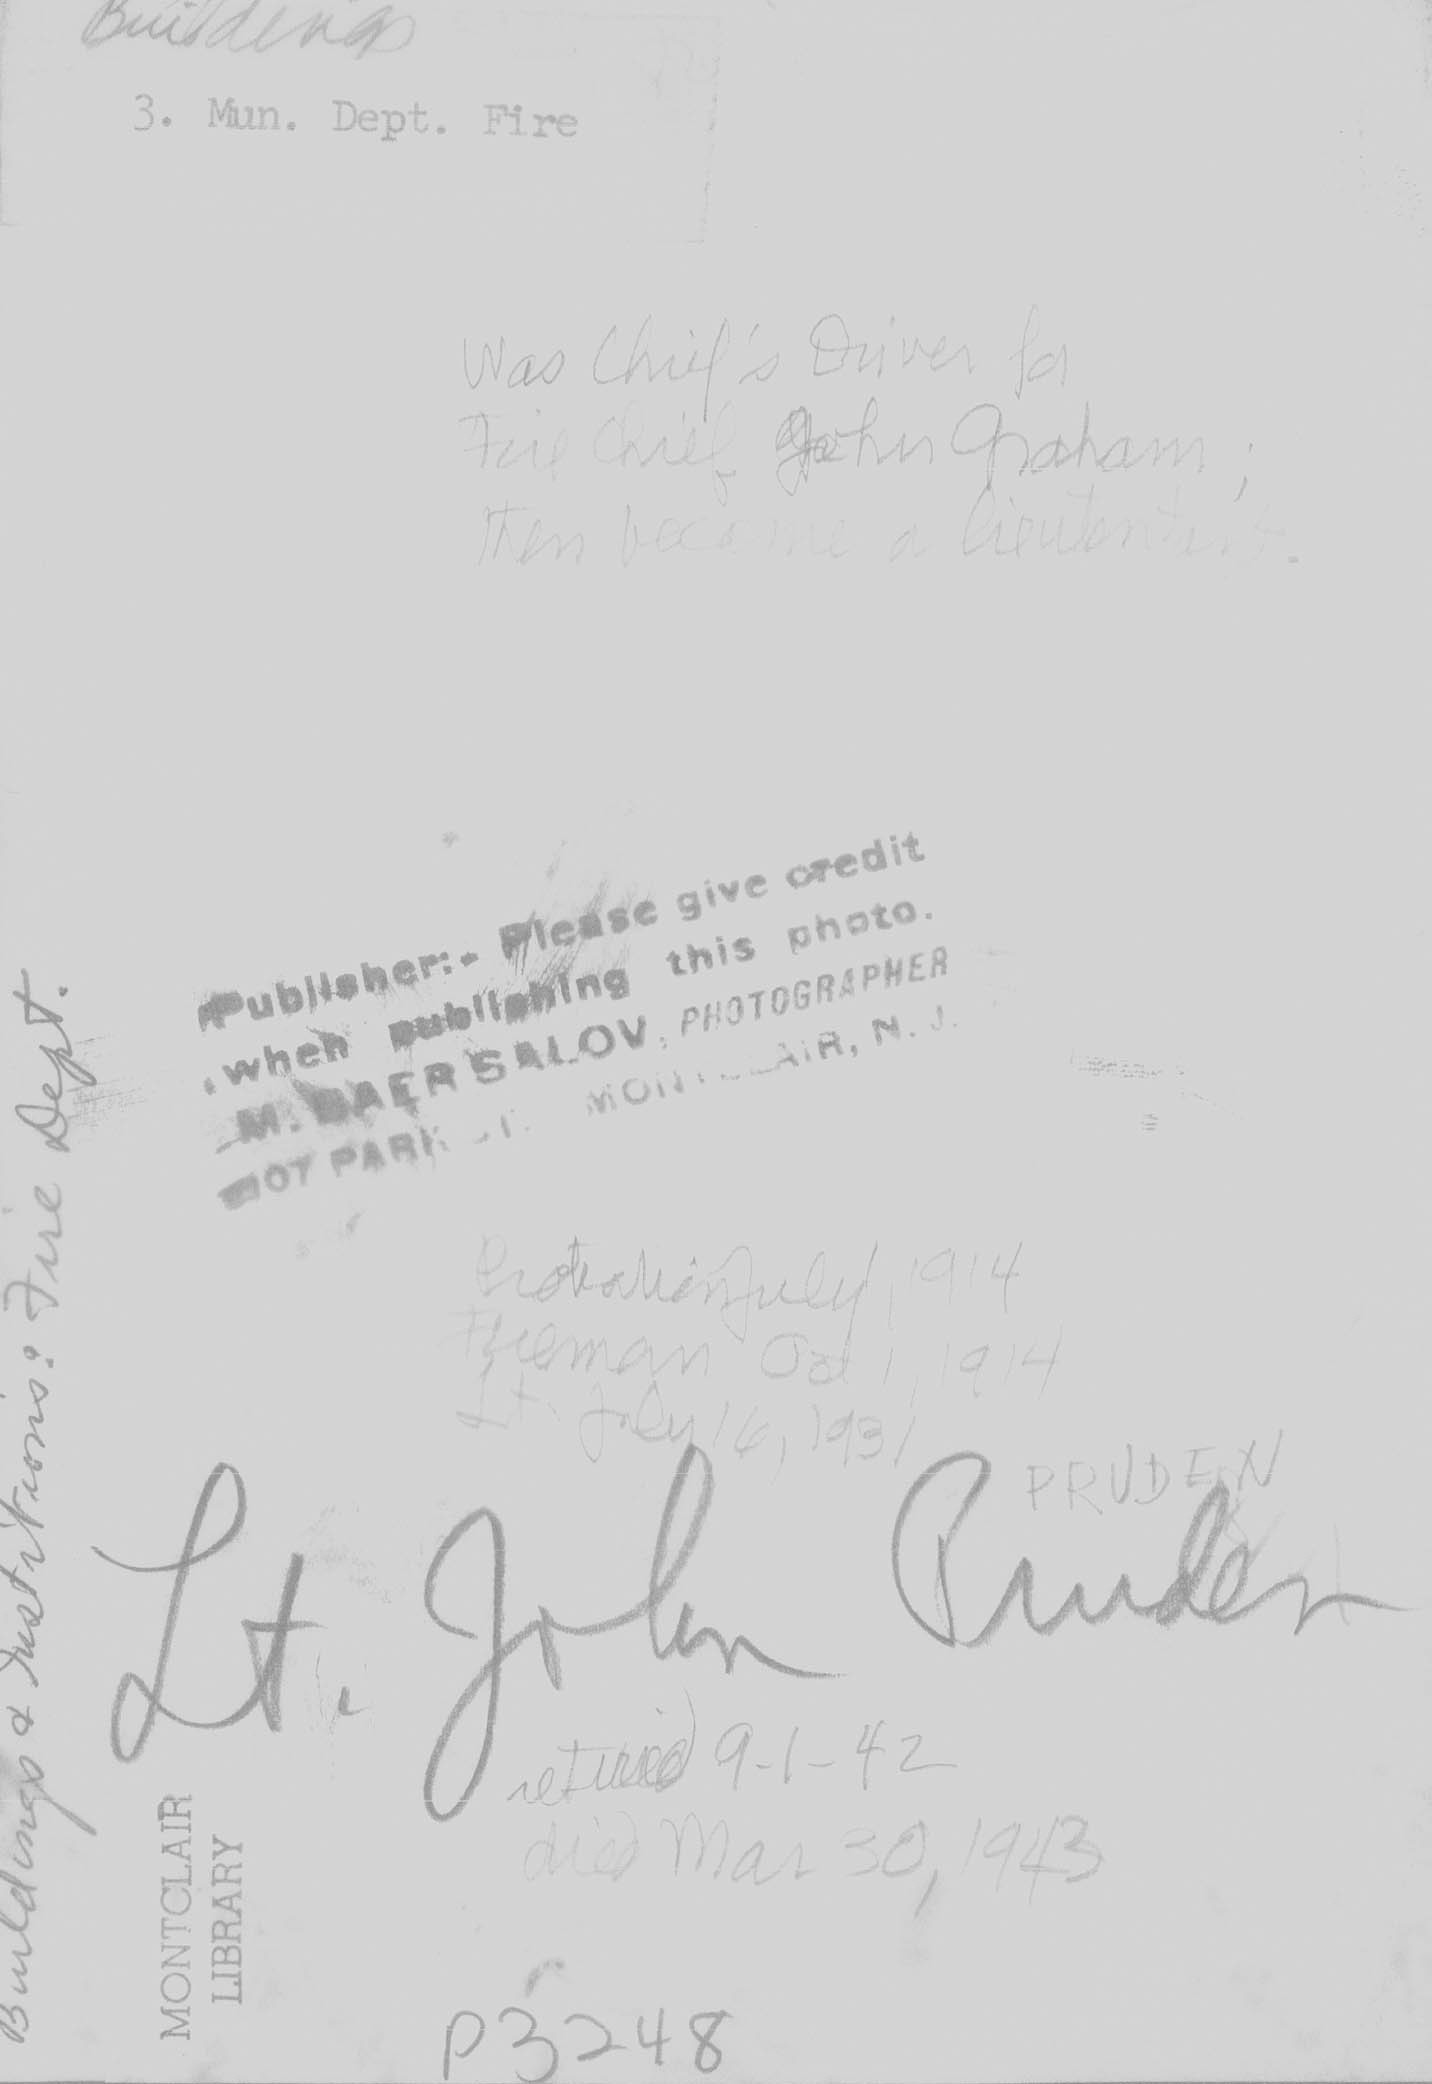 Buildings
3. Mun. Dept. Fire
Was Chief's Driver for
Fire Chief John Graham;
then became a lieutentant.
Publisher:- Please give credit
when publishing this photo.
M. BAER SALOV, PHOTOGRAPHER
07 PARK ST. MONTCLAIR, N. J.
Probation July, 1914
Fireman Oct 1, 1914
Lt. July 16, 1931
PRUDEN
Lt. John Pruden
retired 9-1-42
died Mar 30, 1943
Buildings & Institutions: Fire Dept.
MONTCLAIR
LIBRARY
P3248